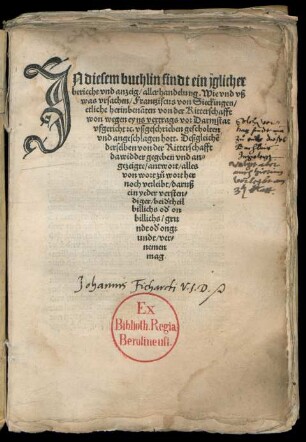 IN diesem buchlin findt ein jglicher
bericht vnd anzeig / aller handelung. Wie vnd vß
was vrsachen / Frangiscus von Sickingen /
etliche herinbenāten von der Ritterschafft
von wegen eyns vertrags vor Darmstat
vffgericht zc. vßgeschrieben gescholten
vnd angeschlagen hort. Deßgliche
derselben von der Ritterschafft
dawidder gegeben vnd an-
gezeigte / antwort / alles
von wort zu wort her
noch verleibt / daruß
ein yeder versten-
diger / beidtheil
billichs od' on
billichs / gru
ndt od' ong-
rundt / ver-
nemen
mag
Johannis Fichardi V.I.D.
Ex
Biblioth. Regia
Berolinensi.